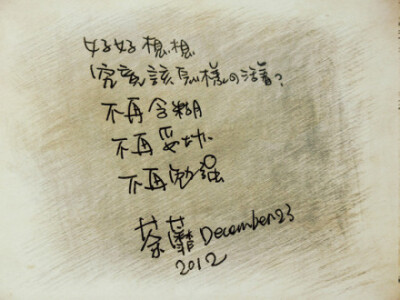 好好想想
究竟該怎樣の活著?
不再含糊
不再妥协
不再勉强
荼蘼 December 23
2012